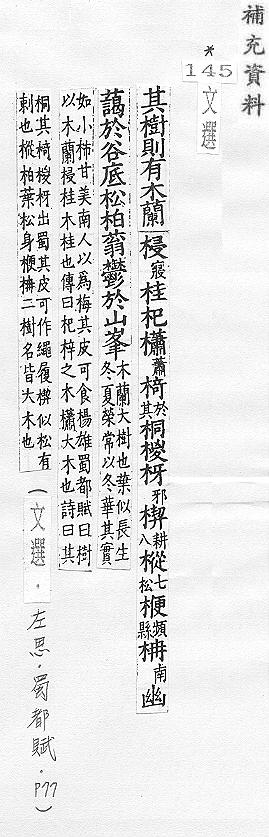 補充資料
*
145
文選
其樹則有木蘭梫寢桂杞櫹蕭椅於其桐椶枒邪楔耕八樅七松楩頻縣枏南幽
藹於谷底松柏蓊鬱於山峯木蘭大樹也葉似長生冬夏榮常以冬華其實
如小柿甘美南人以為梅其皮可食楊雄蜀都賦曰樹
以木蘭梫桂木桂也傳曰杞梓之木櫹大木也詩曰其
桐其椅椶枒出蜀其皮可作繩履楔似松有
刺也樅柏葉松身楩枏二樹名皆大木也
(文選．左思．蜀都賦．P77)